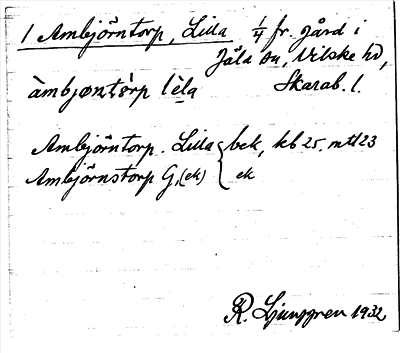 1 Ambjörntorp, Lilla 1/4 fr. gård i
Jäla sn, Vilske hd,
àmbjøntὸrp lèla Skarab. l.
Ambjörntorp. Lilla { bek, kb 25. mtl 23
Ambjörnstorp G, (ek) ek
R. Ljunggren 1932